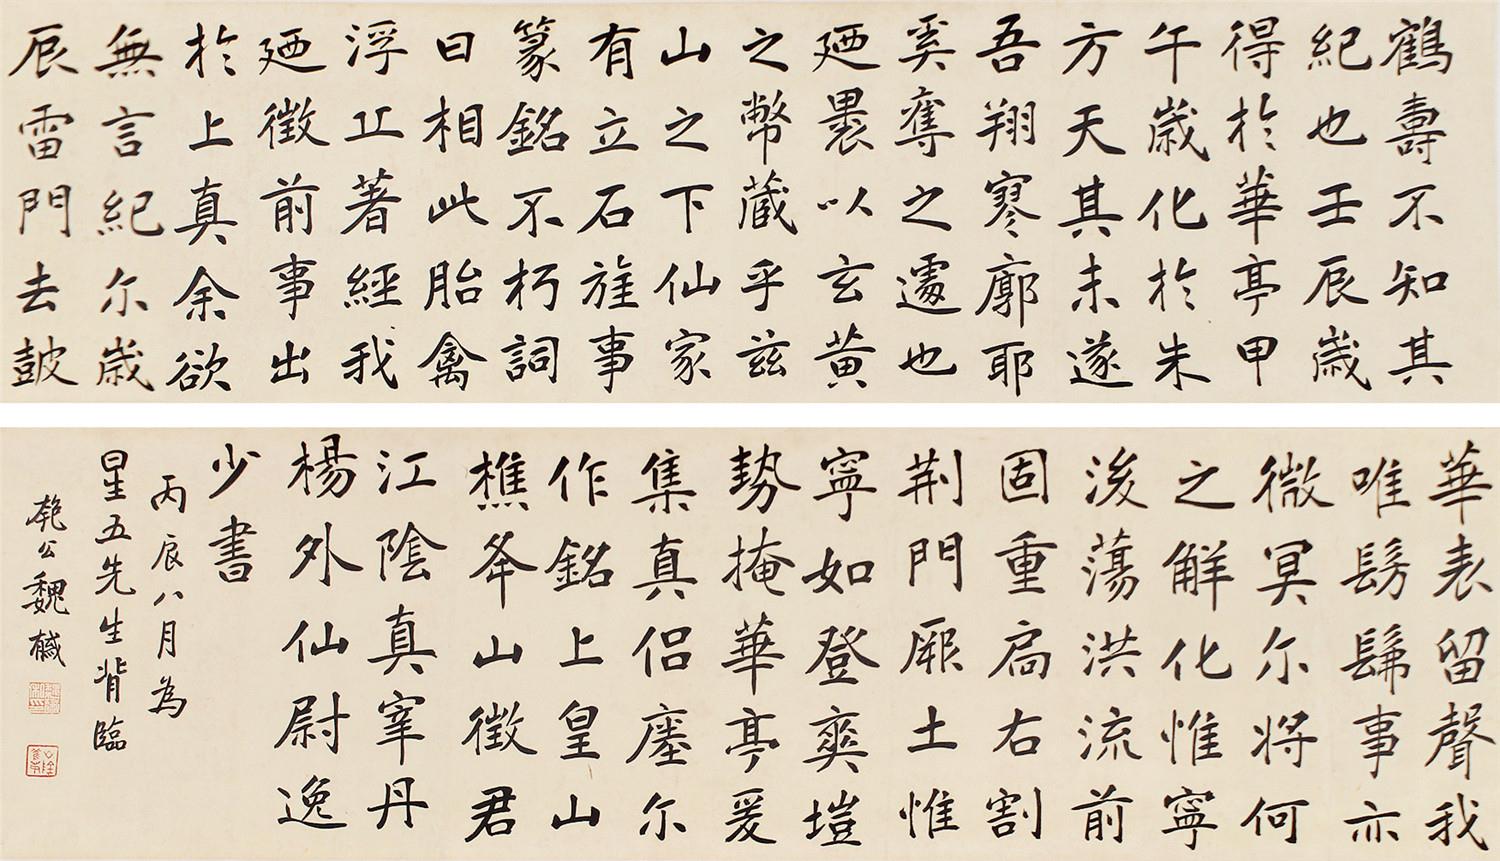 鶴壽不知其
紀也壬辰歲
得於華亭甲
午歲化於朱
方天其未遂
吾翔寥廓耶
奚奪之遽也
廼裹以玄黄
之幣藏乎茲
山之下仙家
有立石旌事
篆銘不朽詞
曰相此胎禽
浮丘著經我
廼徵前事出
於上真余欲
無言紀尔歲
辰雷門去鼓
華表留聲我
唯髣髴事亦
微冥尔将何
之解化惟寧
後蕩洪流前
固重扃右割
荆門厞土惟
寧如登爽塏
勢掩華亭爰
集真侣瘞尔
作銘上皇山
樵夅山徵君
江陰真宰丹
楊外仙尉逸
少書
丙辰八月為
星五先生背臨
匏公魏戫